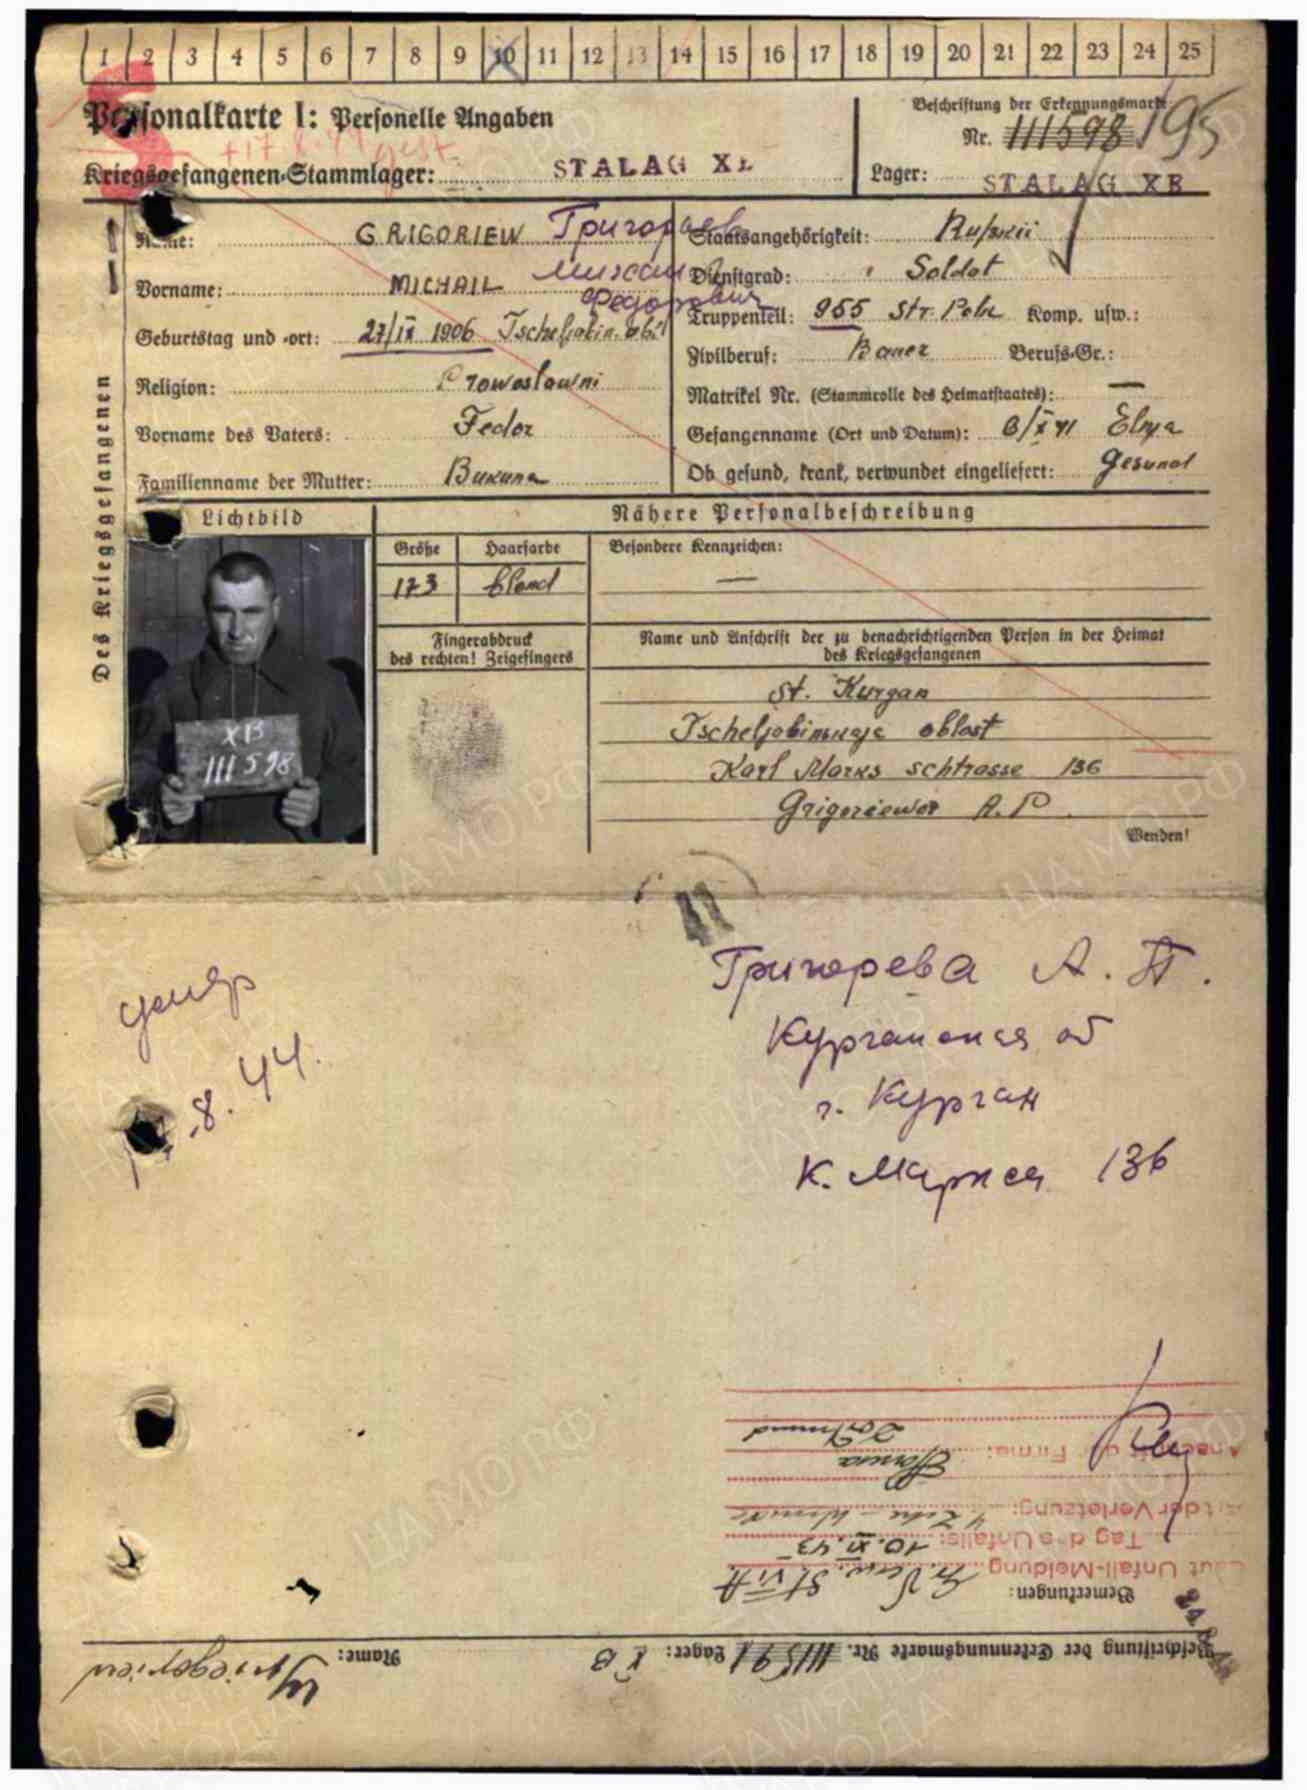 1 2 3 4 5 6 7 8 9 10 11 12 13 14 15 16 17 18 19 20 21 22 23 24 25
Personalkarte I: Personelle Angaben
Beschriftung der Erkennungsmarke
Nr. 111598 195
+17.8.44 gest.
Kriegsgefangenen-Stammlager: STALAG XB
Lager: STALAG XB
Des Kriegsgefangenen
Name: GRIGORIEW Григорьев
Staatsangehörigkeit: Rußkii
Vorname: MICHAIL Михаил Федорович
Dienstgrad: Soldat
Truppenteil: 955 Str. Polk Komp. usw.:
Geburtstag und -ort: 27/IX 1906 Tscheljabin. obl
Zivilberuf: Bauer Berufs-Gr.:
Religion: Prowoslawni
Matrikel Nr. (Stammrolle des Heimatstaates): —
Vorname des Vaters: Fedor
Gefangenname (Ort und Datum): 6/X 41 Elnja
Familienname der Mutter:
Ob gesund, krank, verwundet eingeliefert: Gesund
Lichtbild
Nähere Personalbeschreibung
Größe Haarfarbe Besondere Kennzeichen:
173 blond —
Fingerabdruck
des rechten! Zeigefingers
Name und Anschrift der zu benachrichtigenden Person in der Heimat
des Kriegsgefangenen
XB
111598
St. Kurgan
Tscheljabinskaja oblast
Karl Marks schtrasse 136
Grigoriewoi A. P.
Wenden!
Григорева А. П.
умер
Курганская об
8.44.
г. Курган
К. Маркса 136
Dortmund
Anschrift der Firma:
Art der Verletzung:
Tag des Unfalls: 10. XI. 43
Laut Unfall-Meldung
Bemerkungen:
Beschriftung der Erkennungsmarke Nr. 111591 Lager: XB Name: Griegoriew